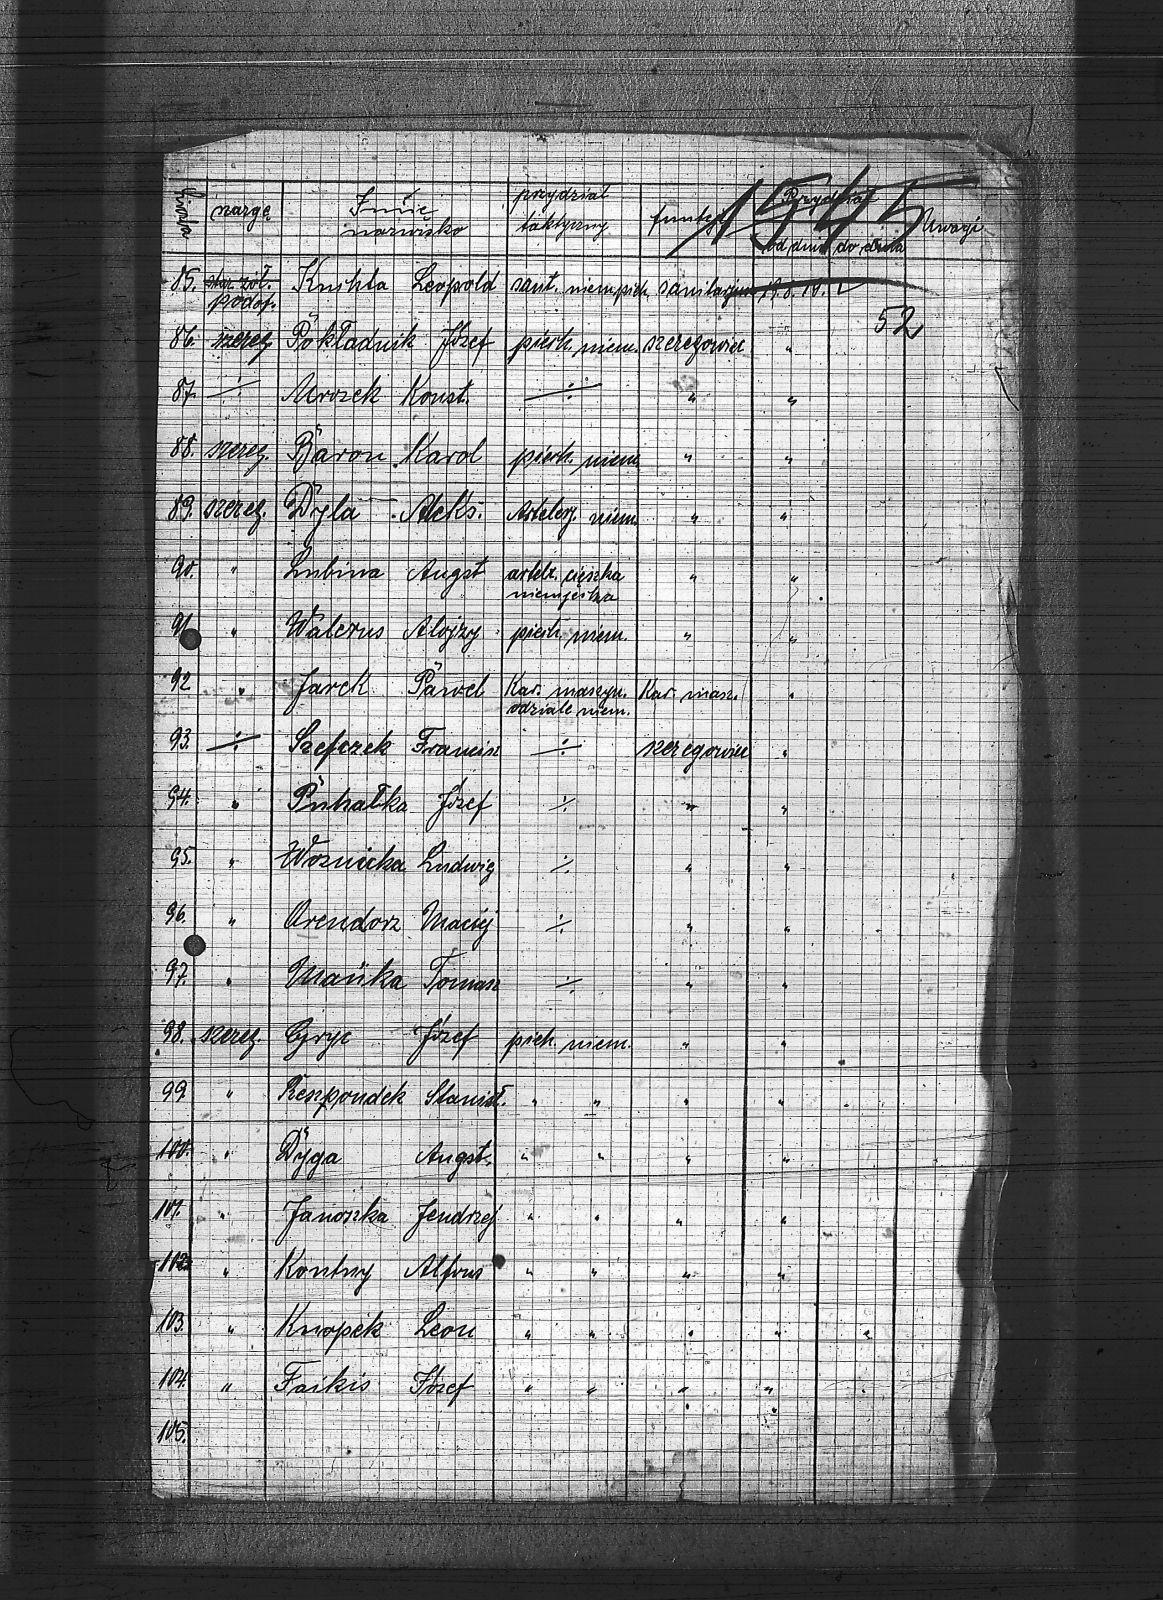 Liczba szarge Imię nazwisko przydział taktyczny funkcj Przydział od dnia do dnia Uwagi
1545
52
85. star. żoł. podof. Leopold sant. niem piech. sanitarjusz 19.8.19.
86. szereg. Pokładnik Józef piech. niem. szeregowiec "
87. ÷ Mrozek Konst. ÷ " "
88. szereg. Baron Karol piech. niem. " "
89. szereg. Dyla Aleks. Artelerj. niem. " "
90. " Lubina Augst artelr. cieszka " "
niemjecka
91. " Walerus Alojzy piech. niem. " "
92 " Jarek Paweł Kar. maszyn. Kar. masz. "
odziale niem.
93. ÷ Szefczek Francisz ÷ szeregowiec "
94. " Puhałka Józef ÷ " "
95. " Woznicka Ludwig ÷ " "
96. " Orendorz Maciej ÷ " "
97. " Mańka Tomasz ÷ " "
98. szereg. Gryc Józef piech. niem. " "
99 " Reszpondek Stanisł. " " " "
100. " Dyga Augst. " " " "
101. " Janoszka Jendrzej " " " "
102. " Kontny Alfons " " " "
103. " Knopek Leon " " " "
104. " Faikis Józef " " " "
105.